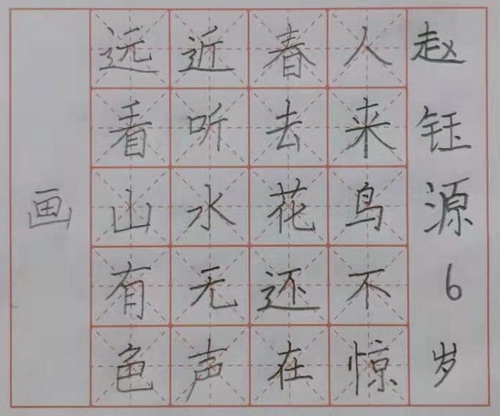 画
远看山有色
近听水无声
春去花还在
人来鸟不惊
赵钰源6岁